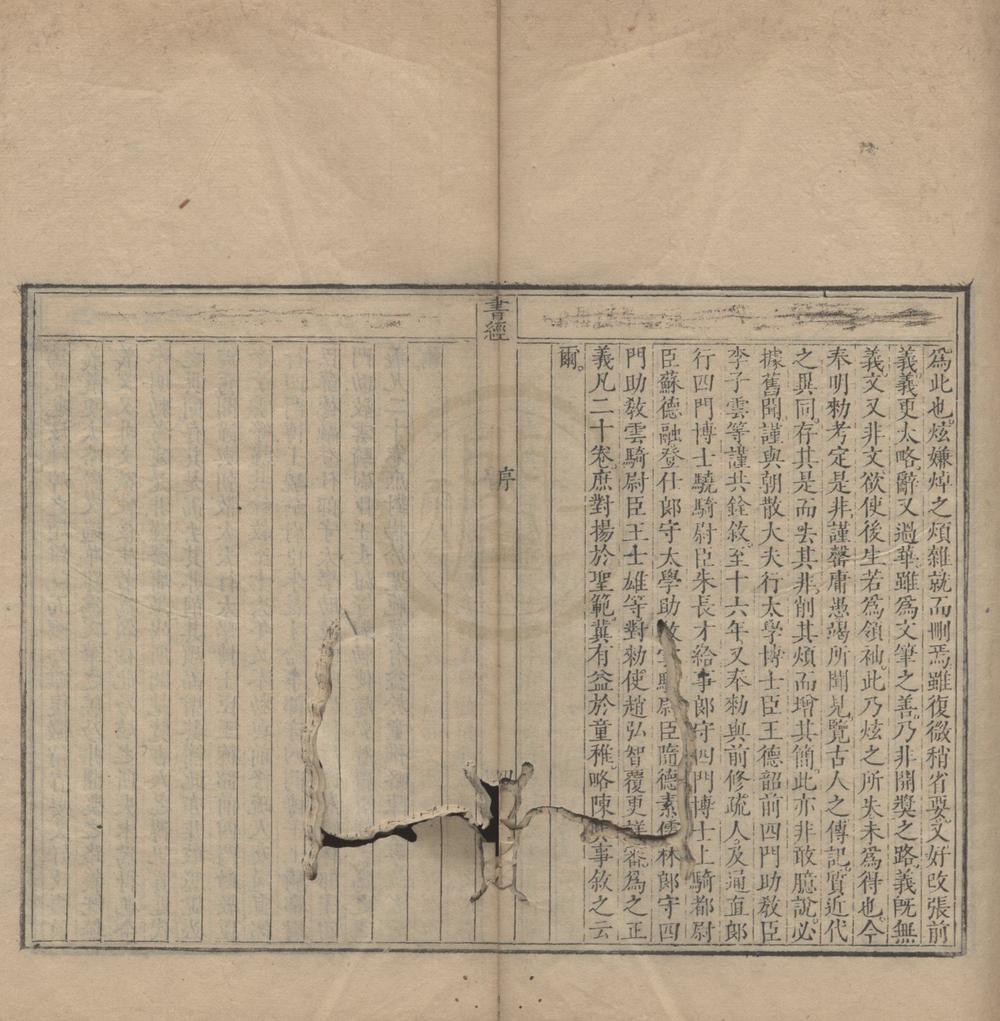 為此也。炫嫌焯之煩雜就而刪焉雖復微稍省要又好改張前
義義更太略辭又過華雖為文筆之善。乃非開奬之路義旣無
義文又非文欲使後生若為領袖。此乃炫之所失未為得也。今
奉明勑考定是非謹罄庸愚竭所聞見。覽古人之傳記。質近代
之異同。存其是而去其非。削其煩而增其簡。此亦非敢臆說。必
據舊聞謹與朝散大夫行太學博士臣王德韶前四門助敎臣
李子雲等謹共銓敘。至十六年又奉勑與前修疏人及通直郎
行四門博士驍騎尉臣朱長才給事郎守四門博士上騎都尉
臣蘇德融登仕郎守太學助騎尉臣隨德素儒林郎守四
門助敎雲騎尉臣王士雄等對勑使趙弘智覆更詳審為之正
義凡二十卷庶對揚於聖範冀有益於童稚。略陳事敘之云
爾。
書經
序